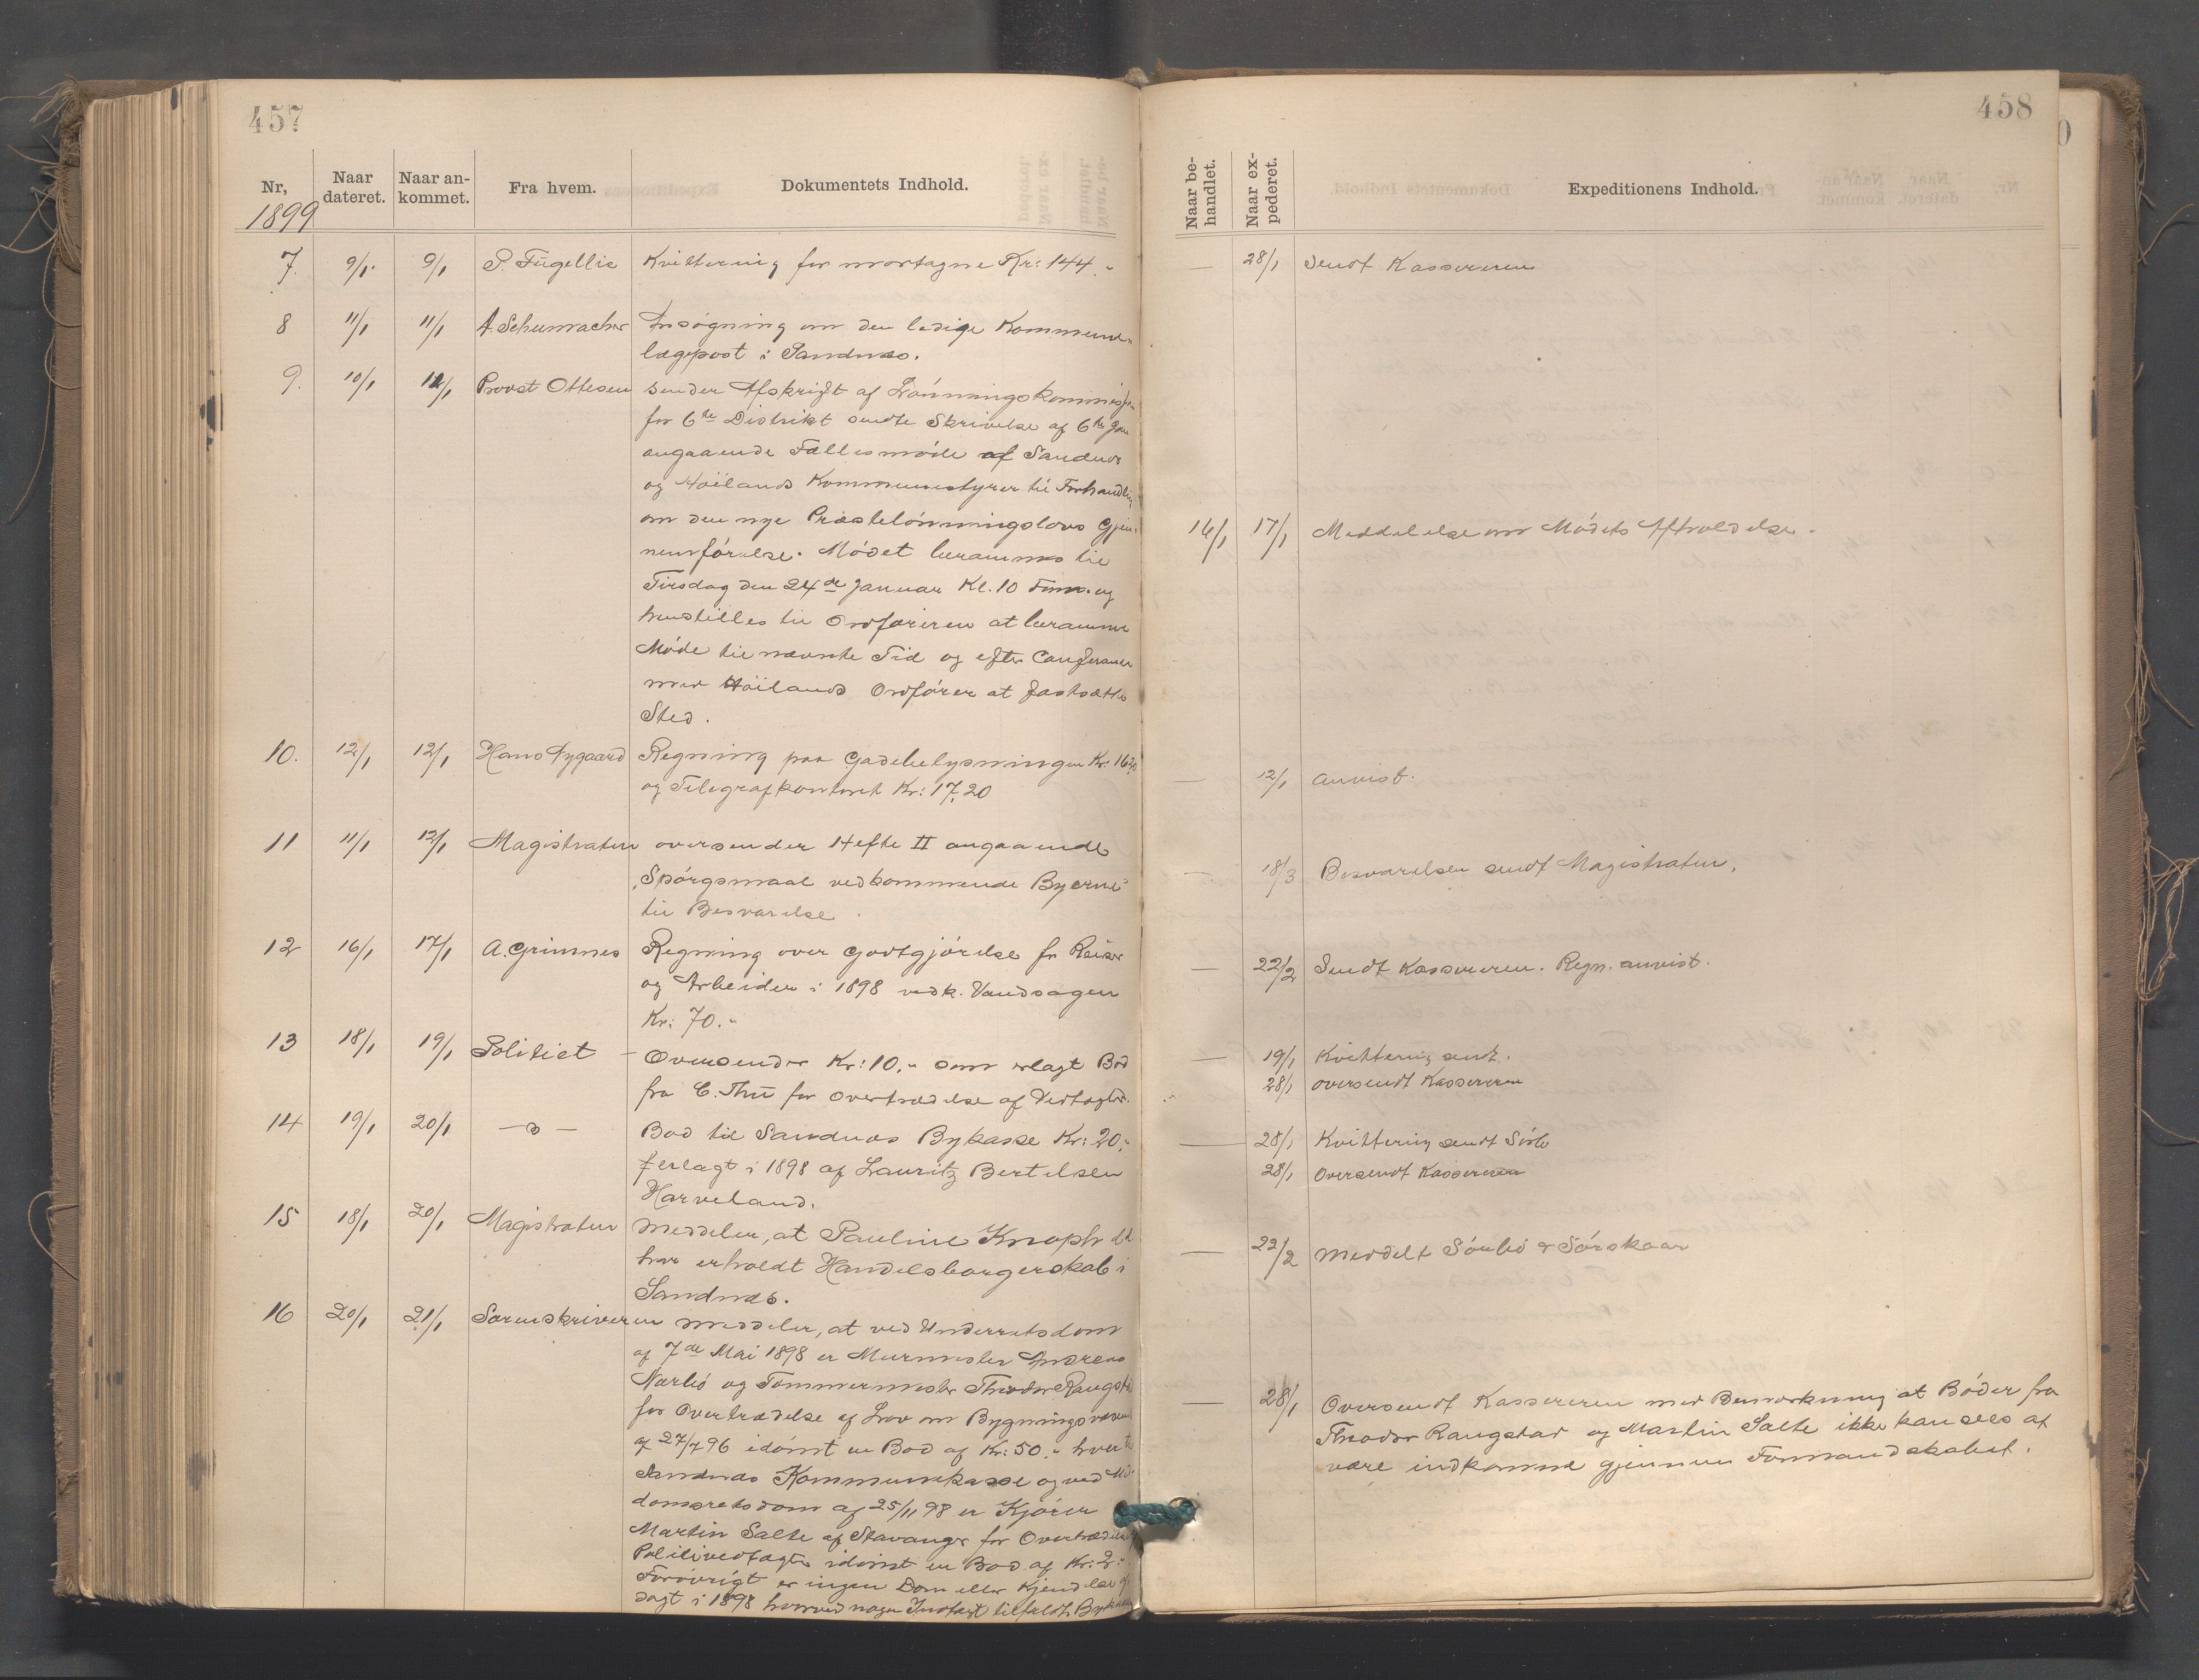 457
Nr,
Naar dateret.
Naar ankommet.
Fra hvem.
Dokumentets Indhold.
1899
7. 9/1. 9/1 P. Fügellie Kvittering for mortagne Kr: 144.-
8 11/1 11/1 A. Schumacher Ansøgning om den ledige Kommune-
lægepost i Sandnæs.
9. 10/1 12/1 Provst Ottesen sender Afskrift af Lønningskommis
for 6te Distrikt sendte Skrivelse af 6te Jan
angaaende Fællesmøde af Sandnæs
og Høilands Kommunestyrer til Forhandlin
om den nye Præstelønningslovs Gjen-
nemførelse. Mødet berammes til
Tirsdag den 24de Januar Kl. 10 Form. og
henstilles til Ordføreren at beramme
Møde til nævnte Tid og efter Conferance
med Høilands Ordfører at fastsætte
Sted.
10. 12/1 12/1 Hans Nygaard Regning paa Gadebelysningen Kr: 16
og Telegrafkontoret Kr: 17,20
11 11/1 12/1 Magistraten oversender Hefte II angaaende
"Spørgsmaal vedkommende Byerne"
til Besvarelse.
12 16/1 17/1 A. Grimnes Regning over Godtgjørelse for Reiser
og Arbeider i 1898 vedk. Vandsagen
Kr: 70.-
13 18/1 19/1 Politiet - Oversender Kr: 10.- som erlagt Bod
fra C. Thu for Overtrædelse af Vedtægter.
14 19/1 20/1 —"— Bod til Sandnæs Bykasse Kr: 20.-
erlagt i 1898 af Lauritz Bertelsen
Harveland.
15 18/1 20/1 Magistraten Meddeler, at Pauline Knoph
har erholdt Handelsborgerskab i
Sandnæs.
16 20/1 21/1 Sorenskriveren meddeler, at ved Underretsdom
af 7de Mai 1898 er Murmester Andreas
Norbø og Tømmermester Theodor Raugstad
for Overtrædelse af Lov om Bygningsvæsen
af 27/7 96 idømt en Bod af Kr: 50.- hver til
Sandnæs Kommunekasse og ved Med-
domsretsdom af 25/11 98 er Kjører
Martin Salte af Stavanger for Overtrædelse
Politivedtægter idømt en Bod af Kr: 2.-
Forøvrigt er ingen Dom eller Kjendelse
sagt i 1898 hvorved nogen Indtægt tilfaldt Bykassen
458
Naar behandlet.
Naar expederet.
Expeditionens Indhold.
— 28/1 Sendt Kassereren
16/1 17/1 Meddelelse om Mødets Afholdelse.
— 12/1 Anvist.
— 18/3 Besvarelsen sendt Magistraten.
— 22/2 Sendt Kassereren. Regn. anvist.
— 19/1 Kvittering sendt.
28/1 oversendt Kassereren
— 28/1 Kvittering sendt Sørbø
28/1 Oversendt Kassereren
— 22/2 Meddelt Sørbø & Sørskaar
— 28/1 Oversendt Kassereren med Bemærkning at Bøder fra
Theodor Raugstad og Martin Salte ikke kan sees at
være indkomne gjennem Formandskabet.